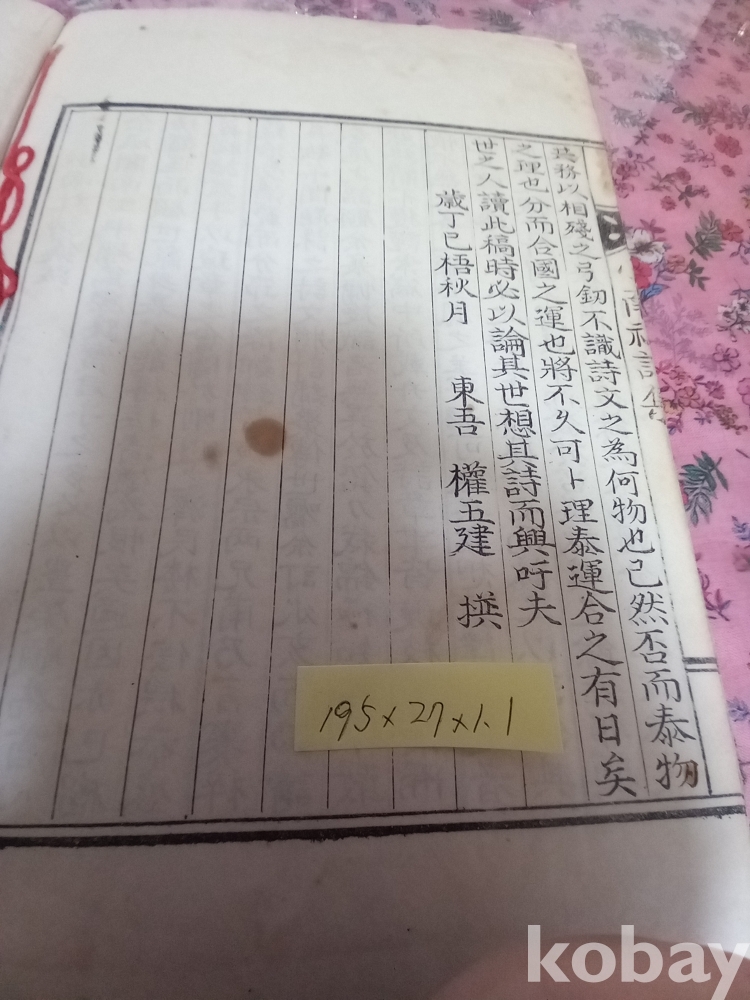 為務以相殘之弓釰不識詩文之為何物也已然否而泰物
之理也分而合國之運也將不久可卜理泰運合之有日矣
世之人讀此稿時必以論其世想其詩而興吁夫
歲丁巳梧秋月 東吾 權五建 撰
195×27×1.1
kobay